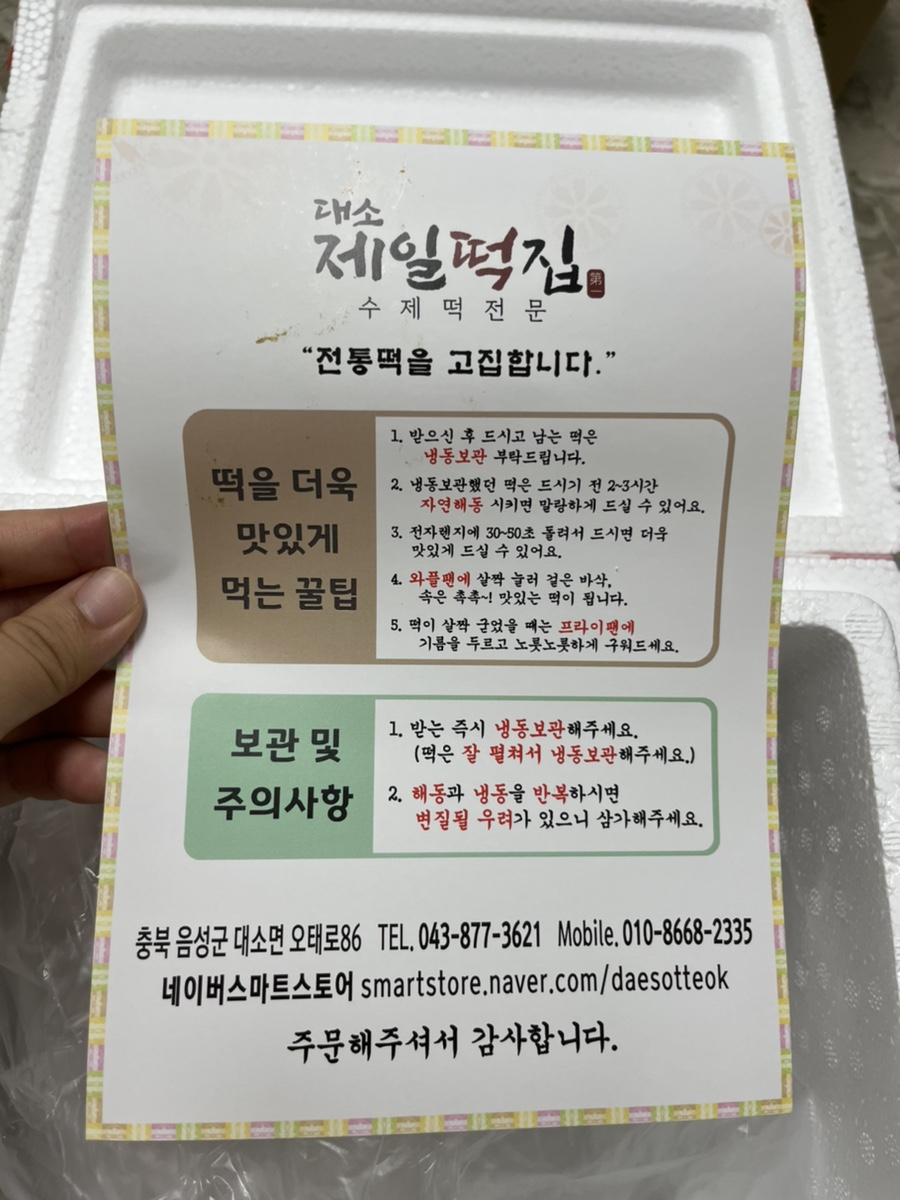 대소
제일떡집
第一
수제떡전문
“전통떡을 고집합니다.”
떡을 더욱
맛있게
먹는 꿀팁
1. 받으신 후 드시고 남는 떡은
냉동보관 부탁드립니다.
2. 냉동보관했던 떡은 드시기 전 2~3시간
자연해동 시키면 말랑하게 드실 수 있어요.
3. 전자렌지에 30~50초 돌려서 드시면 더욱
맛있게 드실 수 있어요.
4. 와플팬에 살짝 눌러 겉은 바삭,
속은 촉촉~! 맛있는 떡이 됩니다.
5. 떡이 살짝 굳었을 때는 프라이팬에
기름을 두르고 노릇노릇하게 구워드세요.
보관 및
주의사항
1. 받는 즉시 냉동보관해주세요.
(떡은 잘 펼쳐서 냉동보관해주세요.)
2. 해동과 냉동을 반복하시면
변질될 우려가 있으니 삼가해주세요.
충북 음성군 대소면 오태로86 TEL. 043-877-3621 Mobile. 010-8668-2335
네이버스마트스토어 smartstore.naver.com/daesotteok
주문해주셔서 감사합니다.